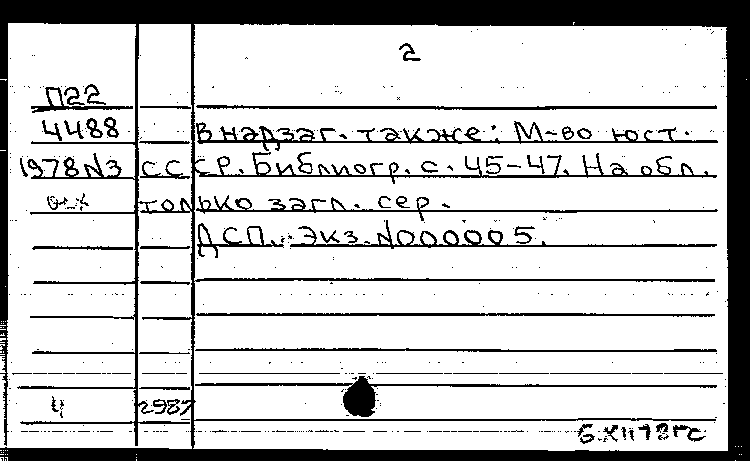 2
П22
4488 В надзаг. также: М-во юст.
1978 N3 СССР. Библиогр. с. 45-47. На обл.
только загл. сер.
ДСП. Экз. N000005.
4 2987
6.XII 78 гс